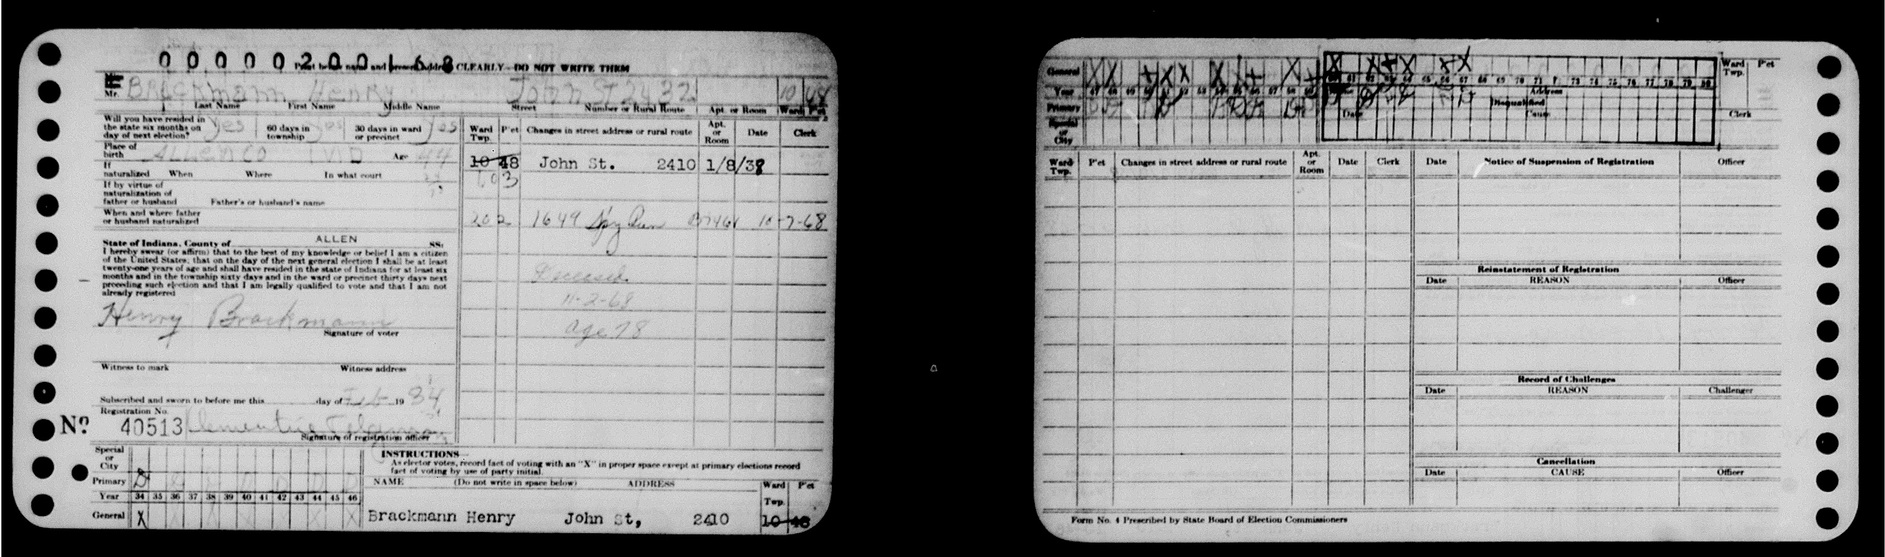 0 0 0 0 0 2 0 0 1 6 8
Print below name and present address CLEARLY—DO NOT WRITE THEM
Mr. Brackmann Henry John St 2432 10 48
Last Name First Name Middle Name Street Number or Rural Route Apt. or Room Ward P'ct
Will you have resided in the state six months on day of next election? Yes 60 days in township Yes 30 days in ward or precinct Yes
Ward Twp. P'ct Changes in street address or rural route Apt. or Room Date Clerk
Place of birth Allen Co IND Age 44
10 48 John St. 2410 1/8/38
If naturalized When Where In what court
103
If by virtue of naturalization of father or husband Father's or husband's name
When and where father or husband naturalized
202 1649 Spy Run 10-7-68
State of Indiana, County of ALLEN SS:
I hereby swear (or affirm) that to the best of my knowledge or belief I am a citizen
of the United States; that on the day of the next general election I shall be at least
twenty-one years of age and shall have resided in the state of Indiana for at least six
months and in the township sixty days and in the ward or precinct thirty days next
preceding such election and that I am legally qualified to vote and that I am not
already registered
Deceased
11-2-68
Age 78
Henry Brackmann
Signature of voter
Witness to mark Witness address
Subscribed and sworn to before me this day of Feb 1934
Registration No.
No. 40513 Clementine
Signature of registration officer
Special or City
Primary D
Year 34 35 36 37 38 39 40 41 42 43 44 45 46
General X
INSTRUCTIONS
As elector votes, record fact of voting with an "X" in proper space except at primary elections record
fact of voting by use of party initial.
NAME (Do not write in space below) ADDRESS Ward Twp. P'ct
Brackmann Henry John St, 2410 10 48
General X X X X X X X X X X X X X X X X
47 48 49 50 51 52 53 54 55 56 57 58 59 60 61 62 63 64 65 66 67 68 69 70 71 72 73 74 75 76 77 78 79 80
Ward Twp. P'ct
Primary
Address
Disqualified
Special or City
Date Cause Clerk
Ward Twp. P'ct Changes in street address or rural route Apt. or Room Date Clerk
Date Notice of Suspension of Registration Officer
Reinstatement of Registration
Date REASON Officer
Record of Challenges
Date REASON Challenger
Cancellation
Date CAUSE Officer
Form No. 4 Prescribed by State Board of Election Commissioners